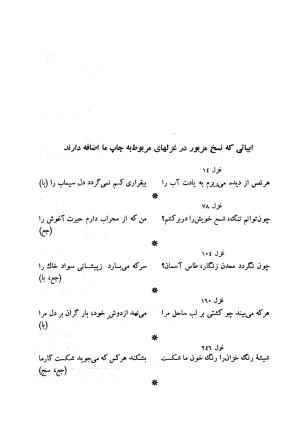 ابیاتی که نسخ مزبور در غزلهای مربوط به چاپ ما اضافه دارند
غزل ۱۴
هرنفس از دیده می‌ریزم به یادت آب را بیقراری کم نمی‌گردد دل سیماب را (با)
*
غزل ۷۸
چون‌توانم تنگ، شمع خویش‌را دربرکشم؟ من که از محراب دارم حیرت آغوش را
(جع)
*
غزل ۱۰۴
چون نگردد معدن زنگار، طاس آسمان؟ سرکه می‌بارد ز پیشانی سواد خاك را
(جع، با)
*
غزل ۱۶۰
هرکه می‌بیند چو کشتی بر لب ساحل مرا می‌نهد ازدوش خود، بار گران بر دل مرا
(با)
*
غزل ۲۴۶
شیشهٔ رنگ خزان‌را رنگ خون ما شکست بشکند هرکس که می‌جوید شکست کارما
(جع، سج)
*